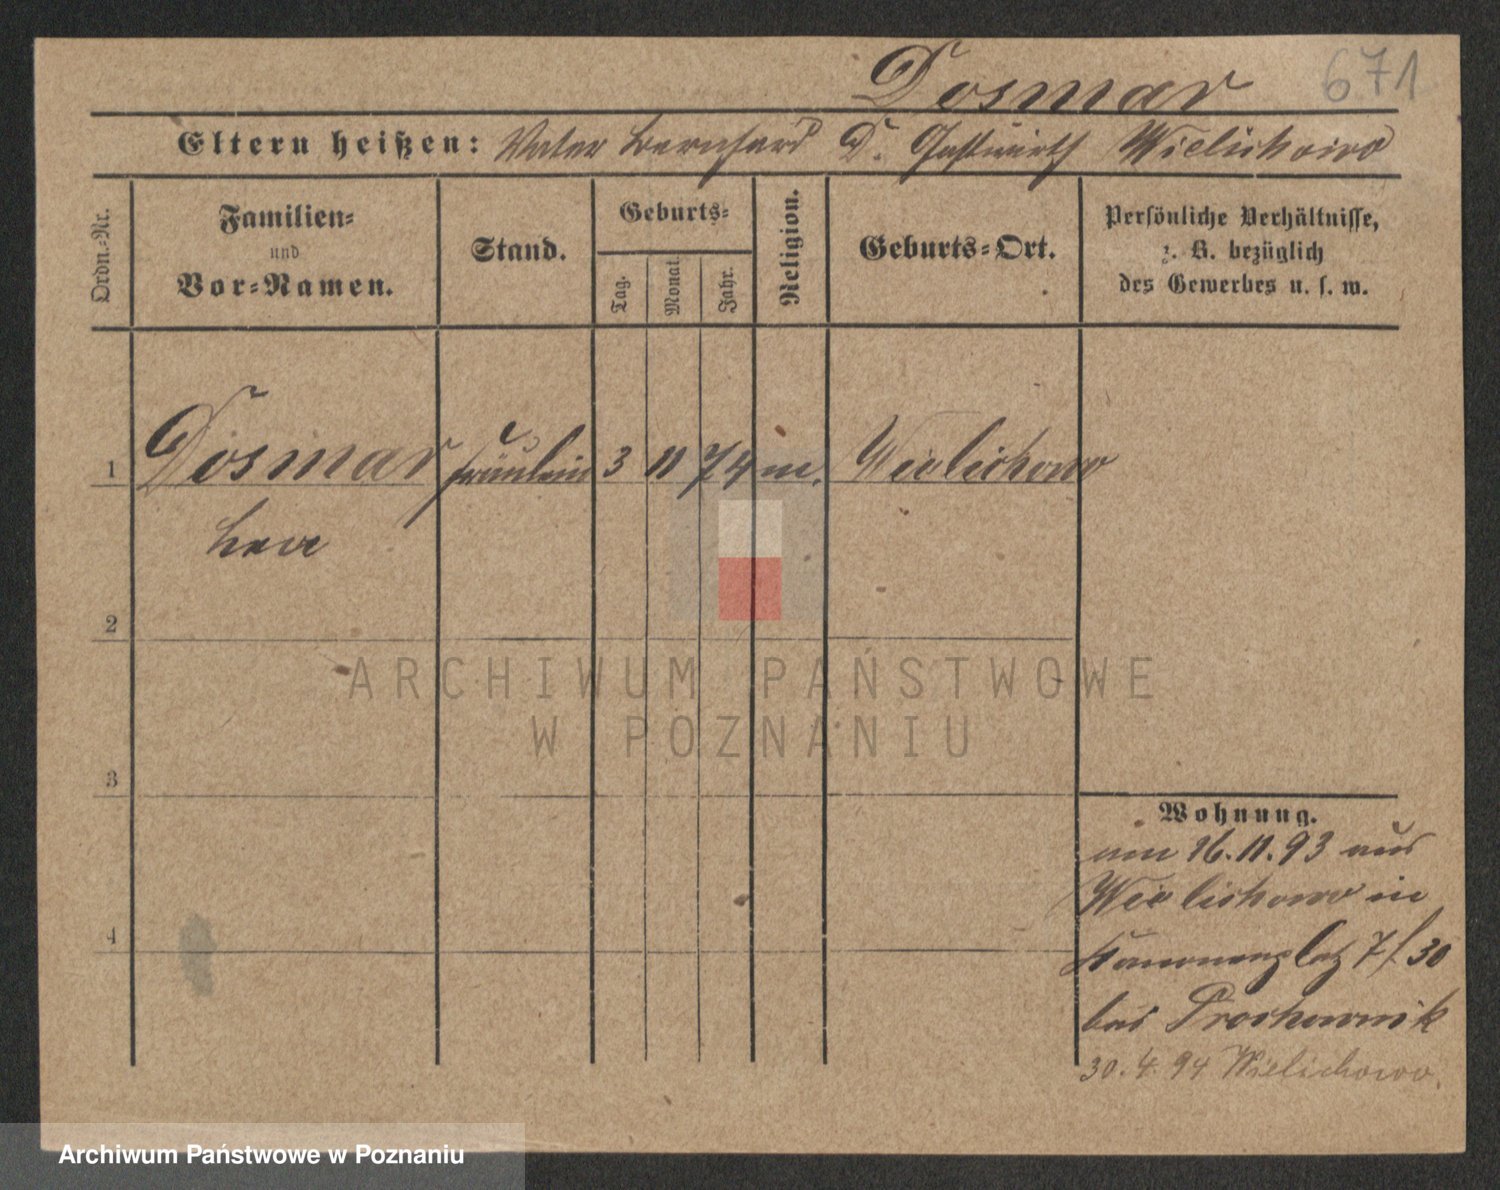 Dosmar 671
Eltern heißen: Vater Bernhard D. Gastwirth Wielichowo
Ordn.-Nr.
Familien-
und
Vor-Namen.
Stand.
Geburts-
Tag.
Monat.
Jahr.
Religion.
Geburts-Ort.
Persönliche Verhältnisse,
z. B. bezüglich
des Gewerbes u. s. w.
1 Dosmar Fräulein 3 11 74 m. Wielichowo
2
ARCHIWUM PAŃSTWOWE
W POZNANIU
3
Wohnung.
am 16.11.93 aus
Wielichowo in
Kanonenplatz 7/. 30
bei Prochownik
4
30.4.94 Wielichowo.
Archiwum Państwowe w Poznaniu